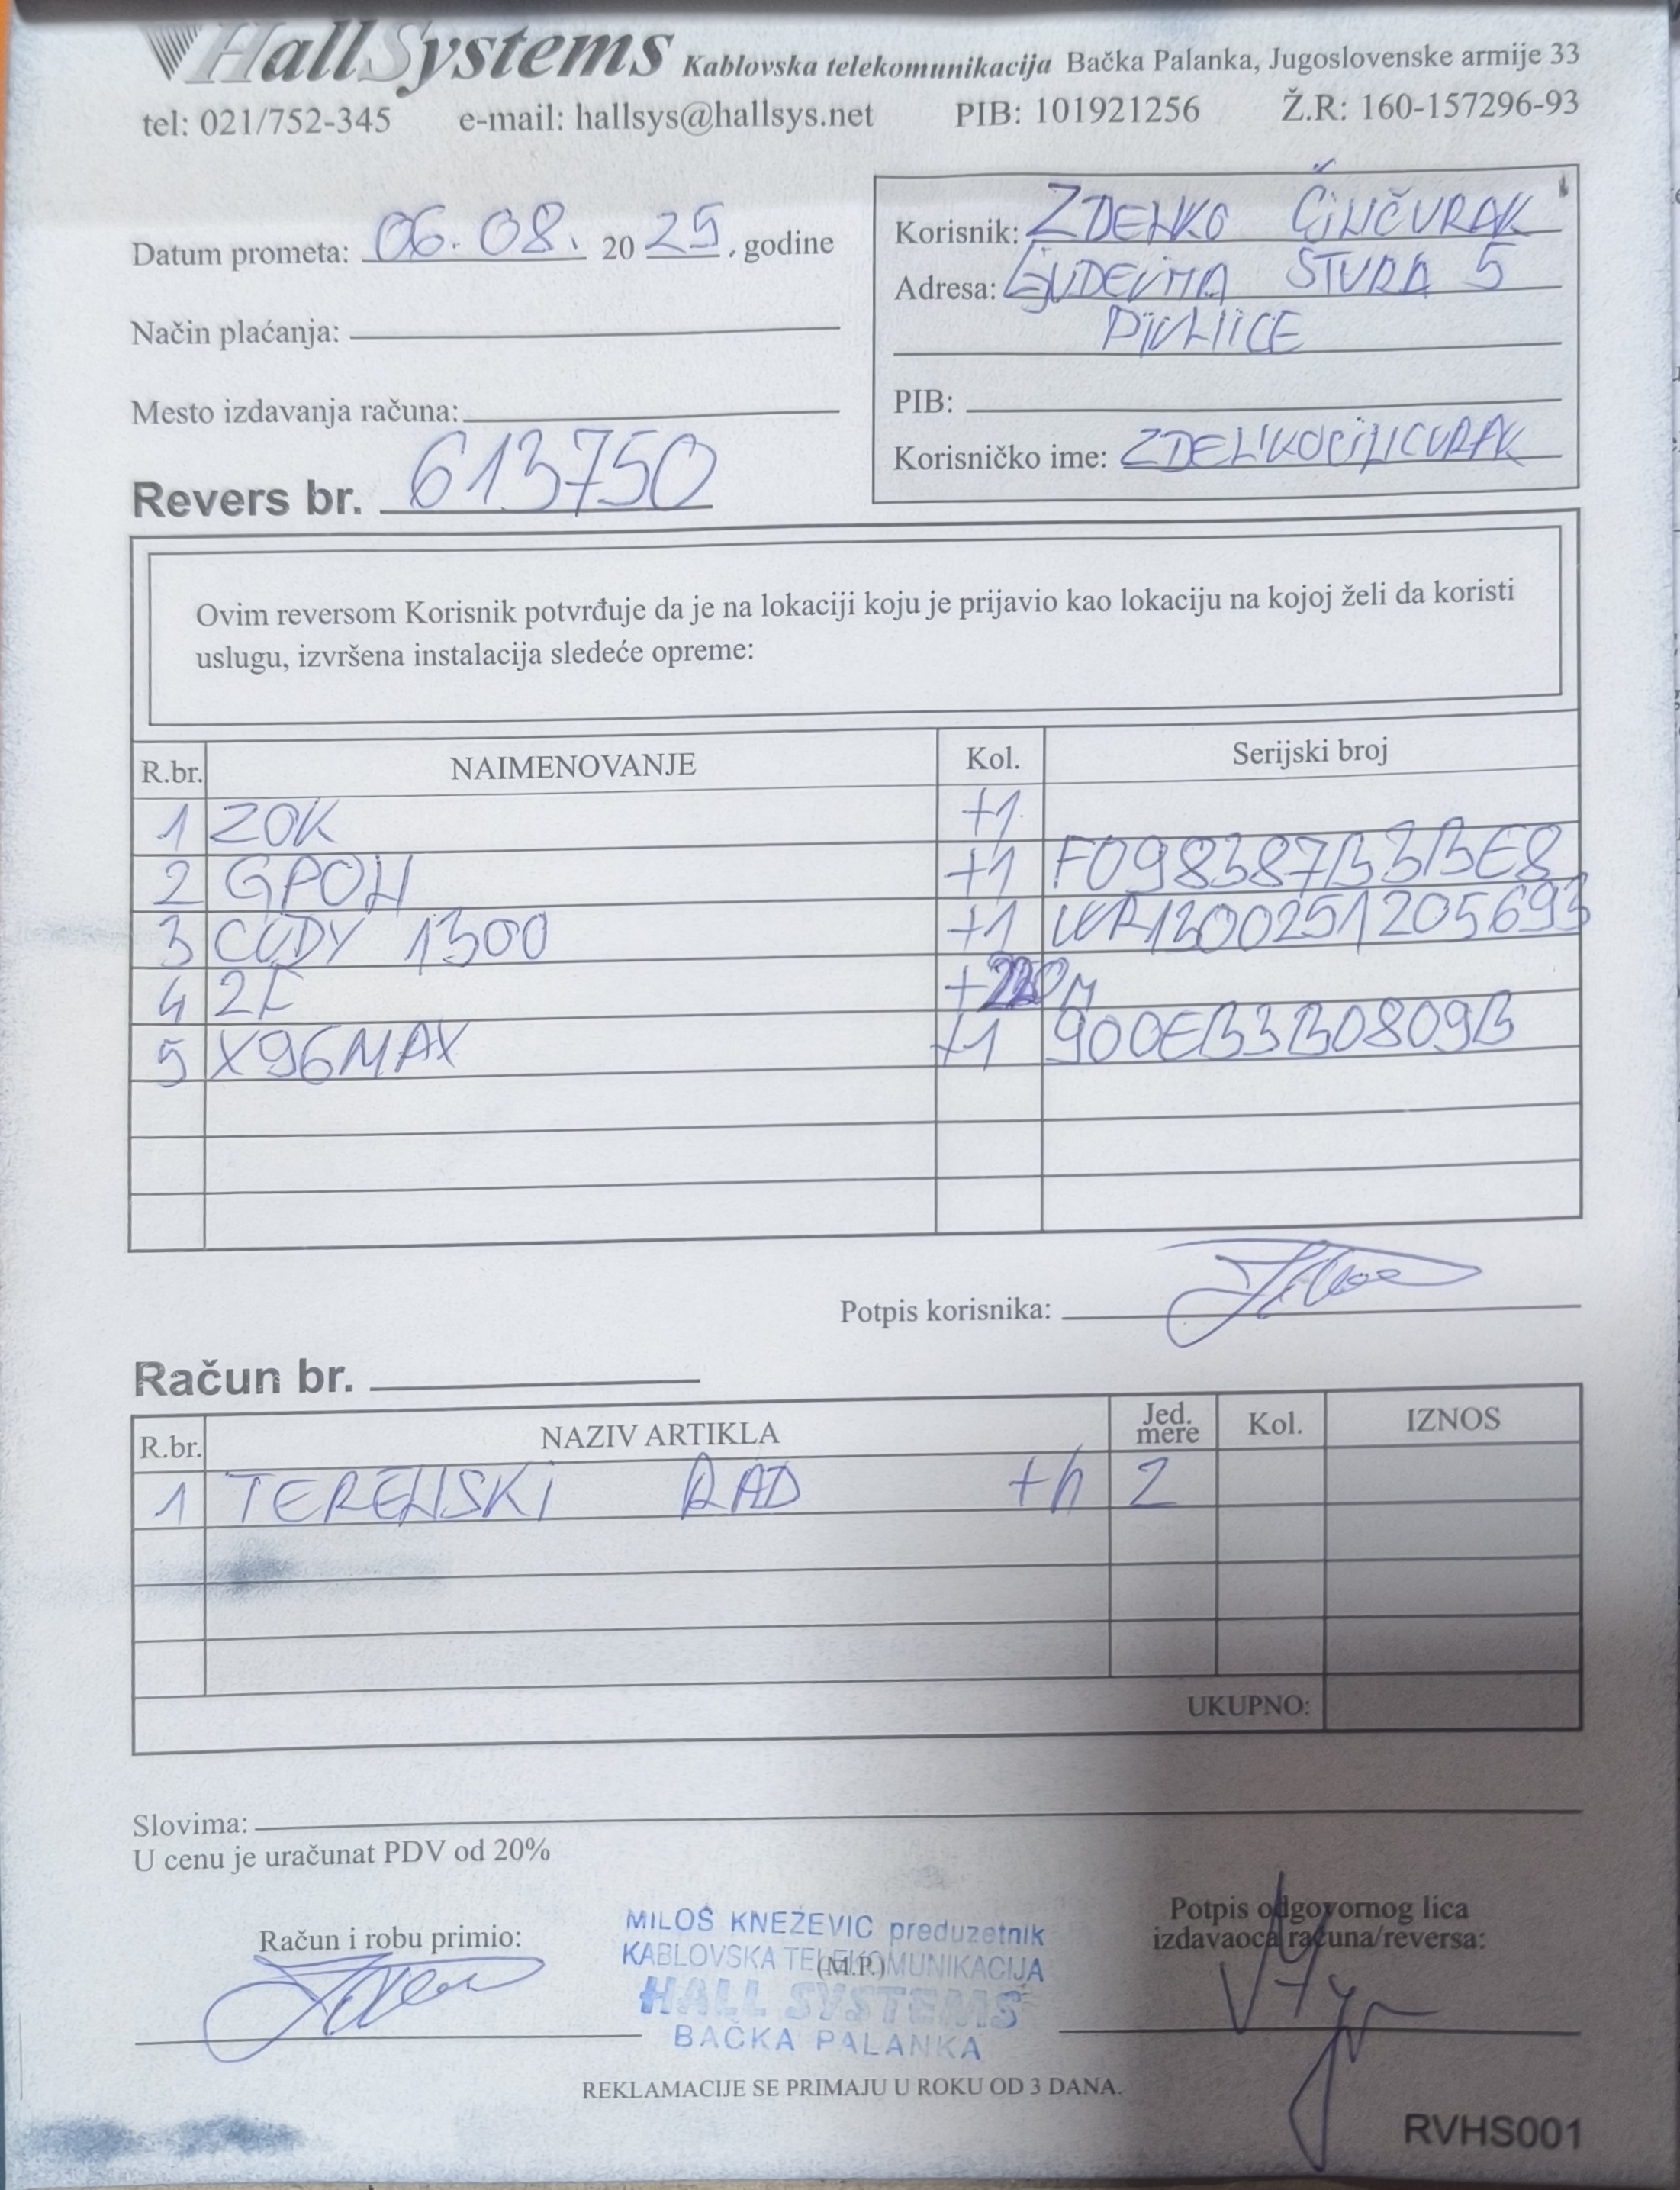 HallSystems Kablovska telekomunikacija Bačka Palanka, Jugoslovenske armije 33
tel: 021/752-345 e-mail: hallsys@hallsys.net PIB: 101921256 Ž.R: 160-157296-93
Datum prometa: 06.08. 2025. godine
Način plaćanja:
Mesto izdavanja računa:
Revers br. 613750
Korisnik: ZDENKO ČINČURAK
Adresa: ŠTURA 5
PIVNICE
PIB:
Korisničko ime:
Ovim reversom Korisnik potvrđuje da je na lokaciji koju je prijavio kao lokaciju na kojoj želi da koristi
uslugu, izvršena instalacija sledeće opreme:
R.br. NAIMENOVANJE Kol. Serijski broj
1 ZOK +1
2 GPON +1 F098387B3BE8
3 CUDY 1300 +1 WR1300251205693
4 2F
5 X96MAX +1 900EB3B0809B
Potpis korisnika:
Račun br.
R.br. NAZIV ARTIKLA Jed. mere Kol. IZNOS
1 TERENSKI RAD +h 2
UKUPNO:
Slovima:
U cenu je uračunat PDV od 20%
Račun i robu primio:
MILOŠ KNEŽEVIĆ preduzetnik
KABLOVSKA TELEKOMUNIKACIJA
(M.P.)
HALL SYSTEMS
BAČKA PALANKA
Potpis odgovornog lica
izdavaoca računa/reversa:
REKLAMACIJE SE PRIMAJU U ROKU OD 3 DANA.
RVHS001